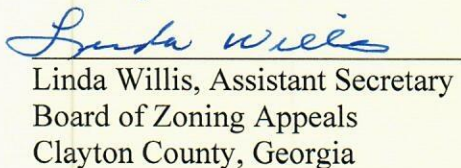 Linda Willis
Linda Willis, Assistant Secretary
Board of Zoning Appeals
Clayton County, Georgia